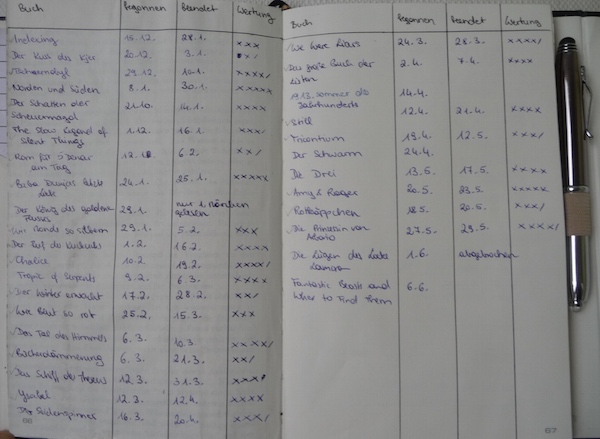 Buch Begonnen Beendet Wertung
15.12. 28.1. xxx
Der Kuss des Kjer 20.12. 3.1. xx/
29.12. 10.1. xxxx/
Norden und Süden 8.1. 30.1. xxxxx
Der Schatten der 21.10. 14.1. xxxx
The Slow Regard of 1.12. 16.1. xxx/
Silent Things
Rom für 5 Denar 6.2. xx/
am Tag
24.1. 25.1. xxxxx
Der König des goldenen 29.1. nur 1. Märchen
gelesen
29.1. 5.2. xxx
Der Ruf des Kuckucks 1.2. 16.2. xxxx
Chalice 10.2. 19.2. xxxx/
Tropic of Serpents 9.2. 6.3. xxxx
17.2. 28.2. xx/
Wie Blut so rot 25.2. 15.3. xxx
des Himmels 6.3. 10.3. xxxx/
Bücherdämmerung 6.3. 21.3. xx/
Das Schiff des Theseus 12.3. 31.3.
12.3. 12.4. xxxx
Der Seidenspinner 16.3. 20.4. xxx/
66
Buch Begonnen Beendet Wertung
We Were Liars 24.3. 28.3. xxxx/
Das große Buch der 2.4. 7.4. xxxx
Listen
1913. Sommer des 14.4.
Jahrhunderts
Still 12.4. 21.4. xxxx
19.4. 12.5. xxx/
Der Schwarm 24.4.
Die Drei 13.5. 17.5. xxxx
Amy & Roger 20.5. 23.5. xxxxx
Rotkäppchen 18.5. 20.5. xxx/
Die Prinzessin von 27.5. 29.5. xxxx/
Die Lügen des Locke 1.6. abgebrochen
Lamora
Fantastic Beasts and 6.6.
Where to Find Them
67